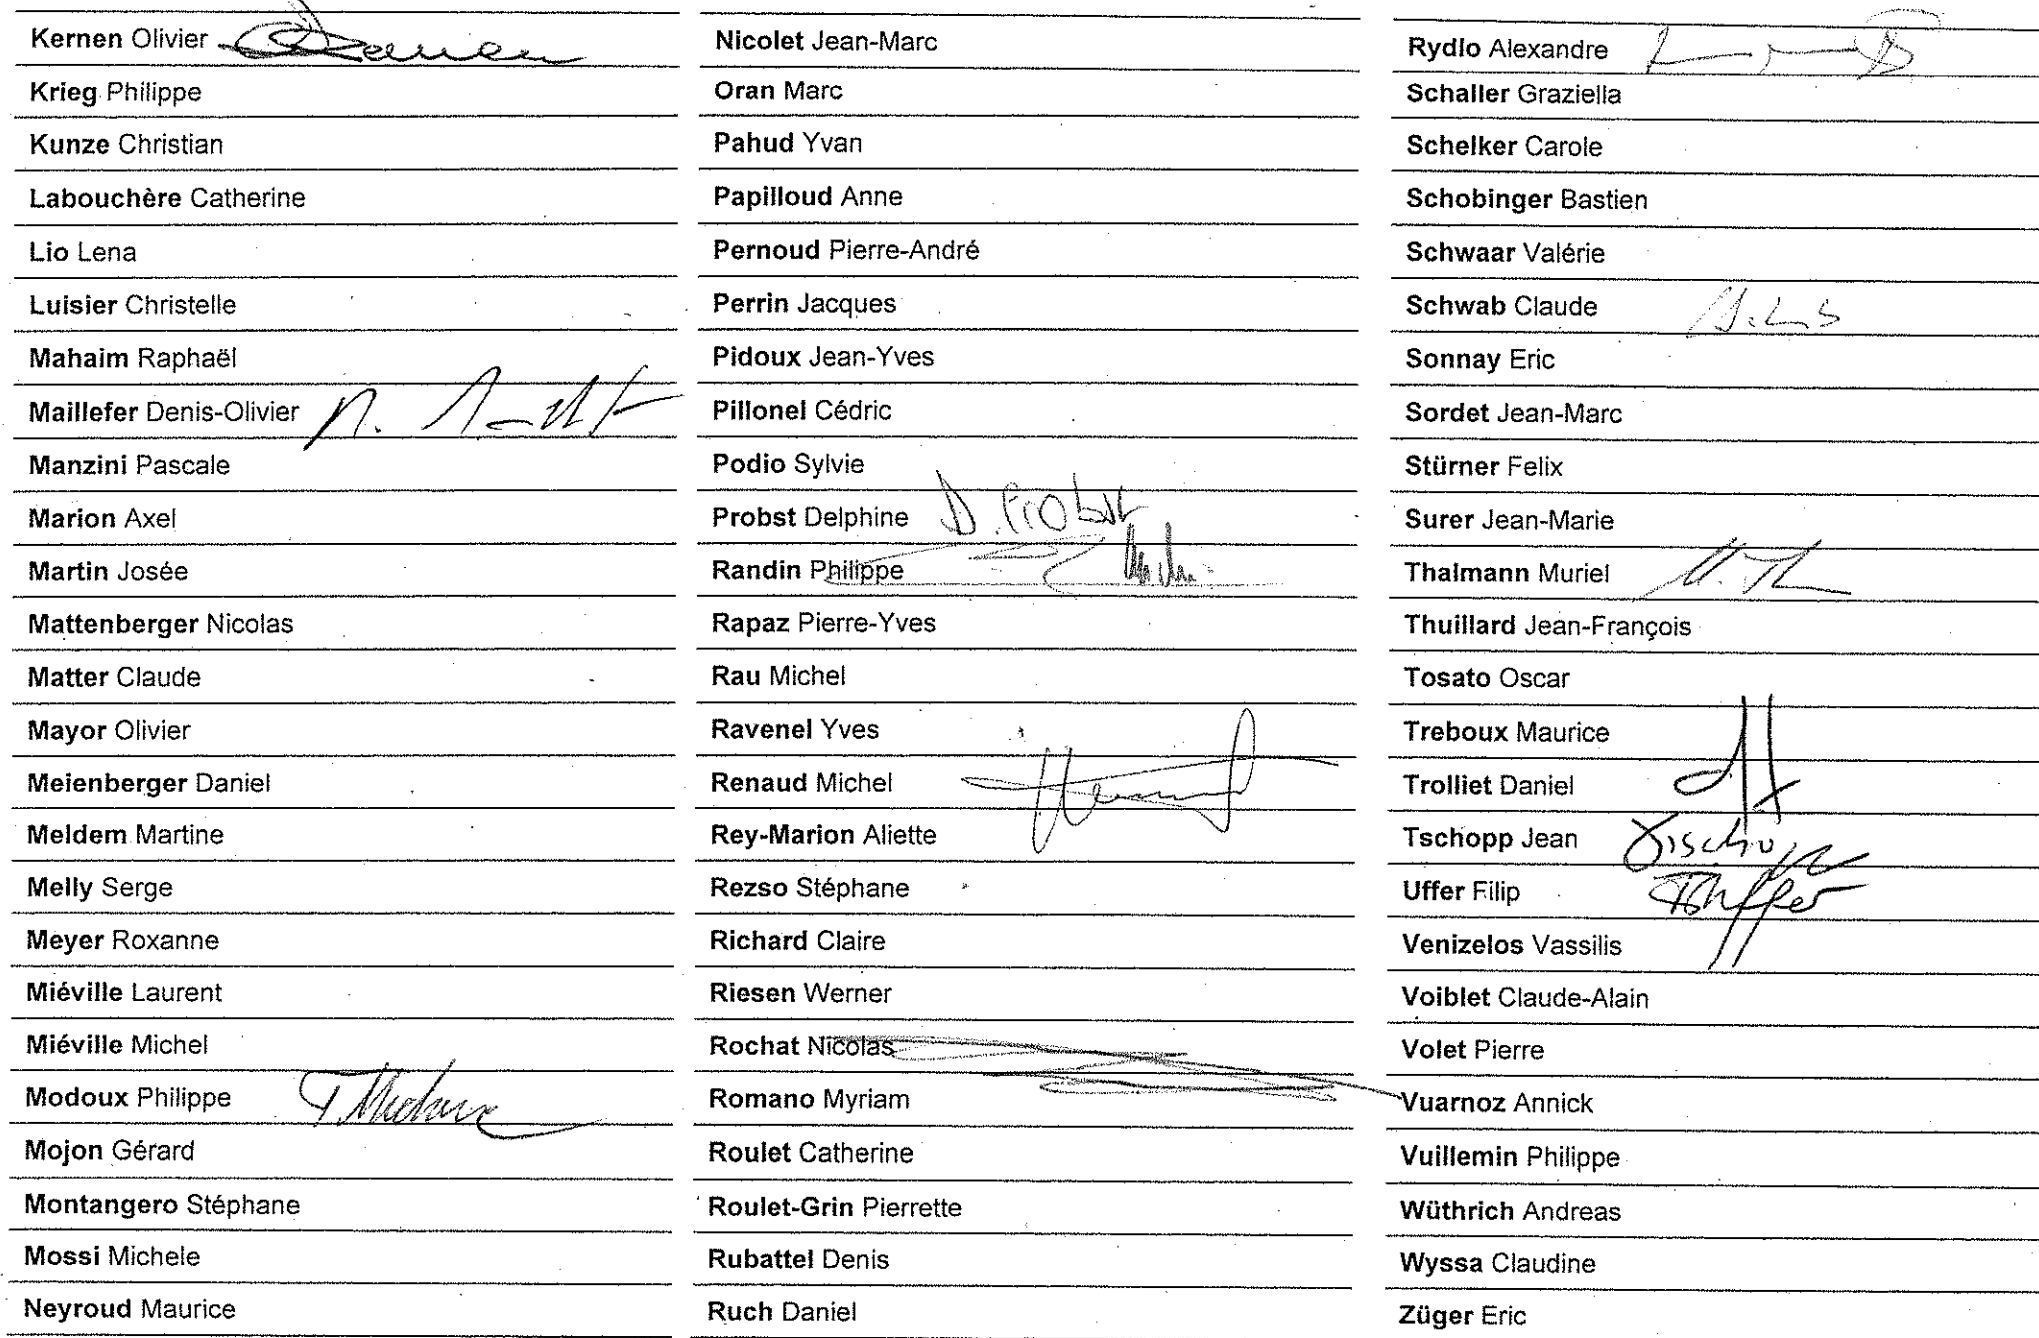 Kernen Olivier
Krieg Philippe
Kunze Christian
Labouchère Catherine
Lio Lena
Luisier Christelle
Mahaim Raphaël
Maillefer Denis-Olivier
Manzini Pascale
Marion Axel
Martin Josée
Mattenberger Nicolas
Matter Claude
Mayor Olivier
Meienberger Daniel
Meldem Martine
Melly Serge
Meyer Roxanne
Miéville Laurent
Miéville Michel
Modoux Philippe
Mojon Gérard
Montangero Stéphane
Mossi Michele
Neyroud Maurice
Nicolet Jean-Marc
Oran Marc
Pahud Yvan
Papilloud Anne
Pernoud Pierre-André
Perrin Jacques
Pidoux Jean-Yves
Pillonel Cédric
Podio Sylvie
Probst Delphine D. Probst
Randin Philippe
Rapaz Pierre-Yves
Rau Michel
Ravenel Yves
Renaud Michel
Rey-Marion Aliette
Rezso Stéphane
Richard Claire
Riesen Werner
Rochat Nicolas
Romano Myriam
Roulet Catherine
Roulet-Grin Pierrette
Rubattel Denis
Ruch Daniel
Rydlo Alexandre
Schaller Graziella
Schelker Carole
Schobinger Bastien
Schwaar Valérie
Schwab Claude
Sonnay Eric
Sordet Jean-Marc
Stürner Felix
Surer Jean-Marie
Thalmann Muriel
Thuillard Jean-François
Tosato Oscar
Treboux Maurice
Trolliet Daniel
Tschopp Jean
Uffer Filip
Venizelos Vassilis
Voiblet Claude-Alain
Volet Pierre
Vuarnoz Annick
Vuillemin Philippe
Wüthrich Andreas
Wyssa Claudine
Züger Eric